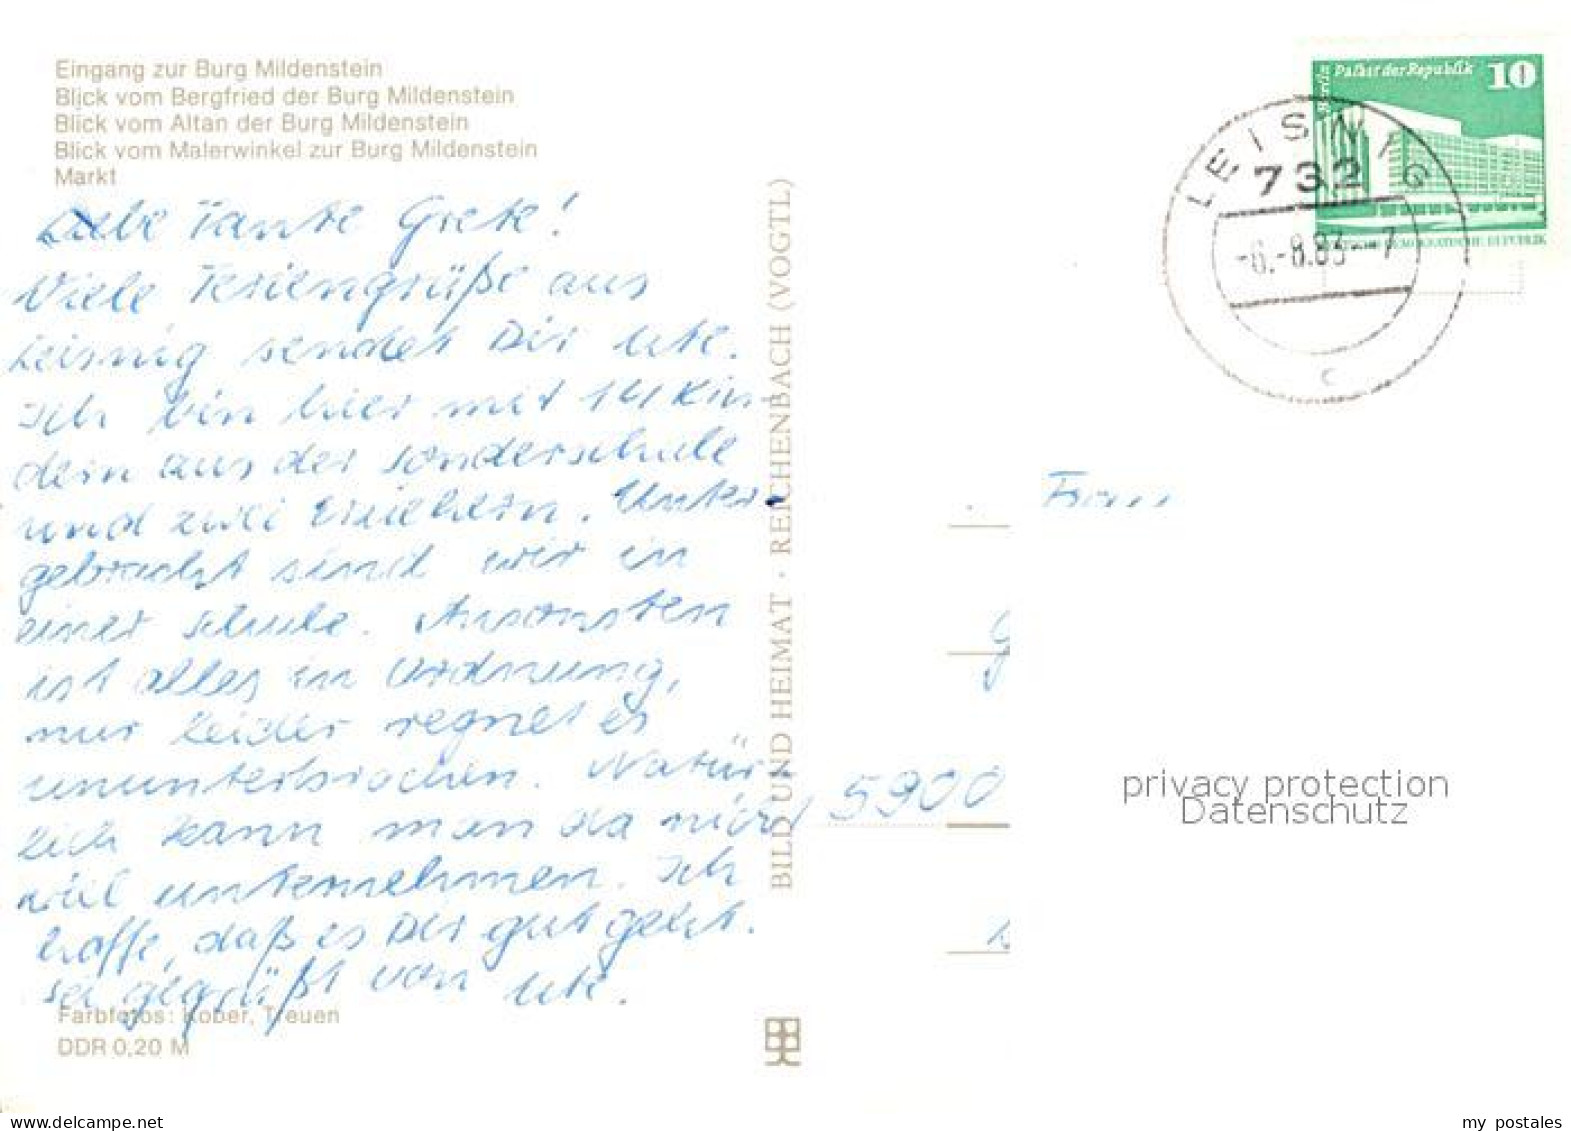 Eingang zur Burg Mildenstein
Blick vom Bergfried der Burg Mildenstein
Blick vom Altan der Burg Mildenstein
Blick vom Malerwinkel zur Burg Mildenstein
Markt
Liebe Tante Grete!
Viele Feriengrüße aus
Leisnig sendet Dir Ute.
Ich bin hier mit 14 Kin-
dern aus der Sonderschule
und zwei Erziehern. Unter-
gebracht sind wir in
einer Schule. Ansonsten
ist alles in Ordnung,
nur leider regnet es
ununterbrochen. Natür-
lich kann man da nicht
viel unternehmen. Ich
hoffe, daß es Dir gut geht.
Sei gegrüßt von Ute.
Farbfotos: Kober, Treuen
DDR 0,20 M
BILD UND HEIMAT · REICHENBACH (VOGTL)
Berlin
Palast der Republik 10
DEMOKRATISCHE REPUBLIK
LEISNIG
732
-6.-8.83--7
c
Frau
5900
privacy protection
Datenschutz
www.delcampe.net
my_postales